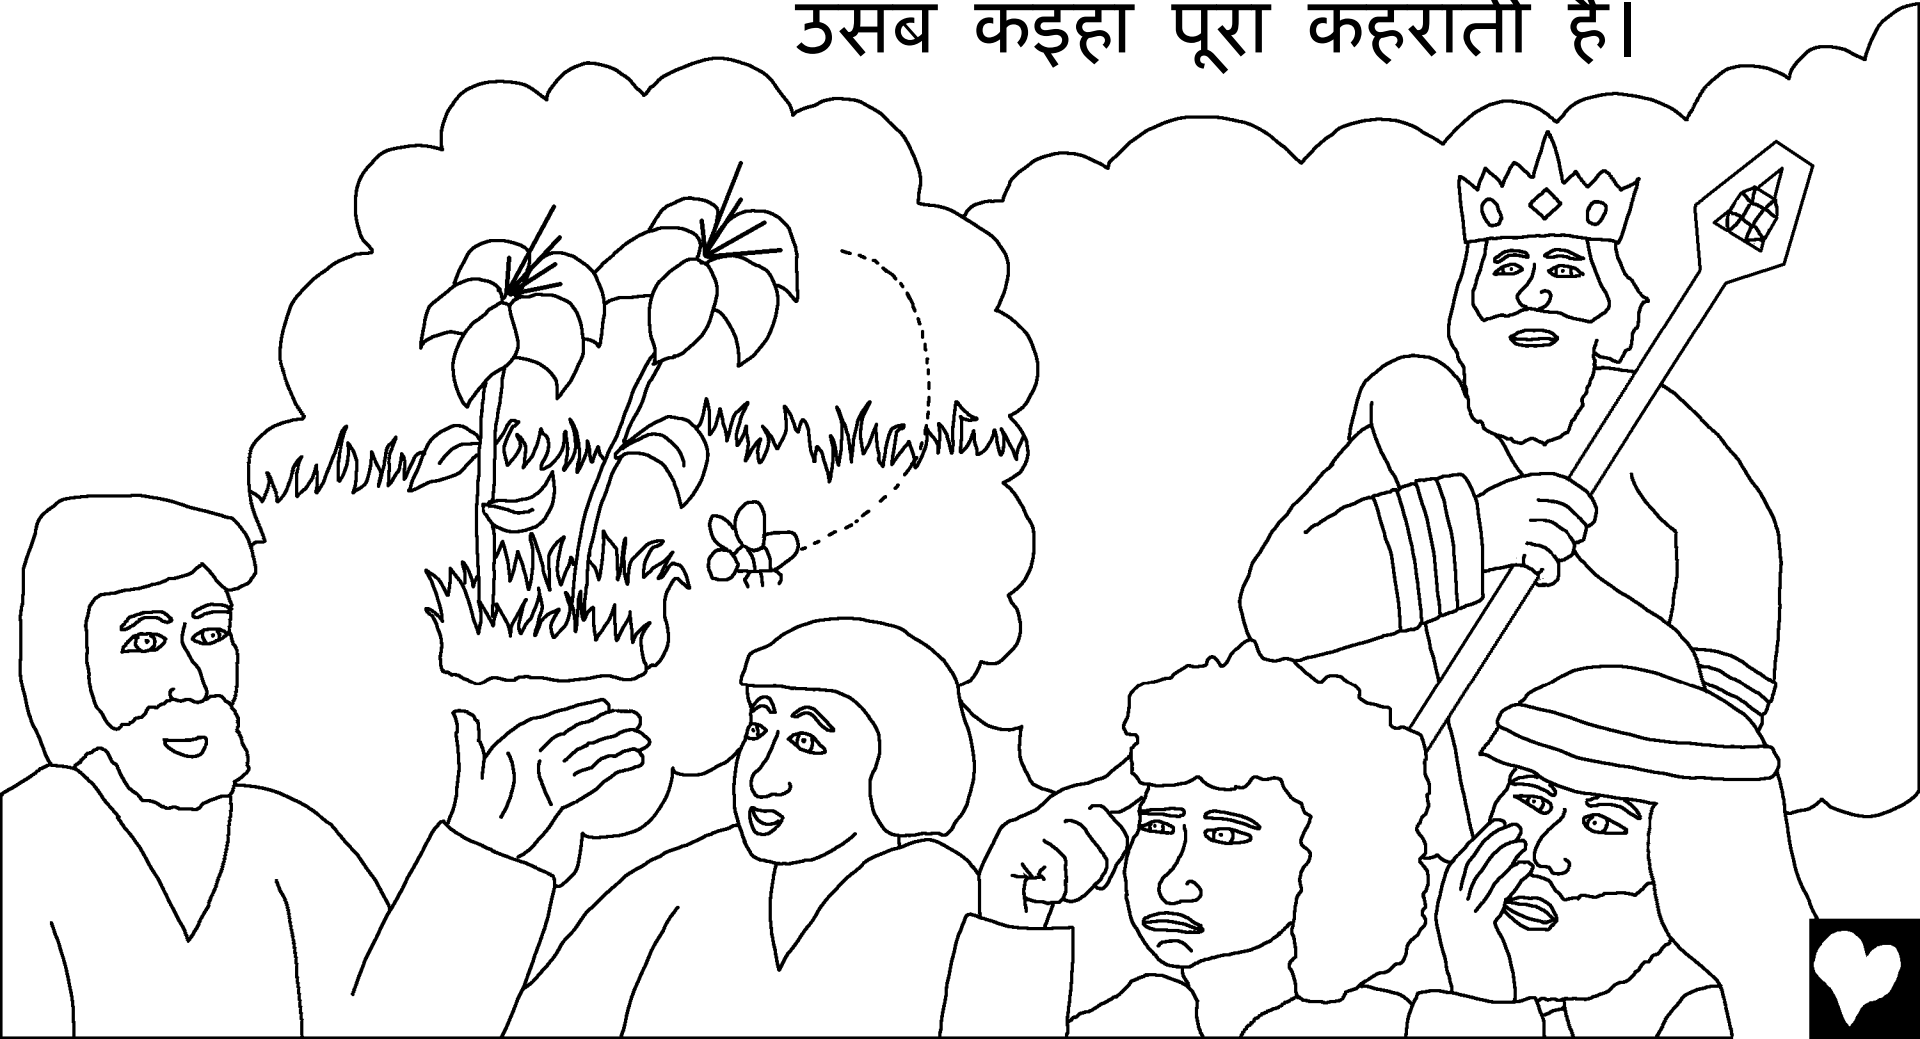 उसब कइहा पूरा कहराती है।